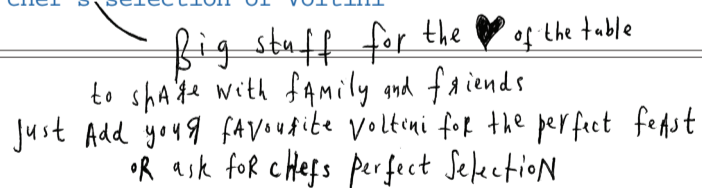 chef's selection of voltini
Big stuff for the ♥ of the table
to shARe with fAMily and fRiends
Just Add youR fAVouRite Voltini foR the perfect feAst
OR ask foR cHefs perfect SelectioN